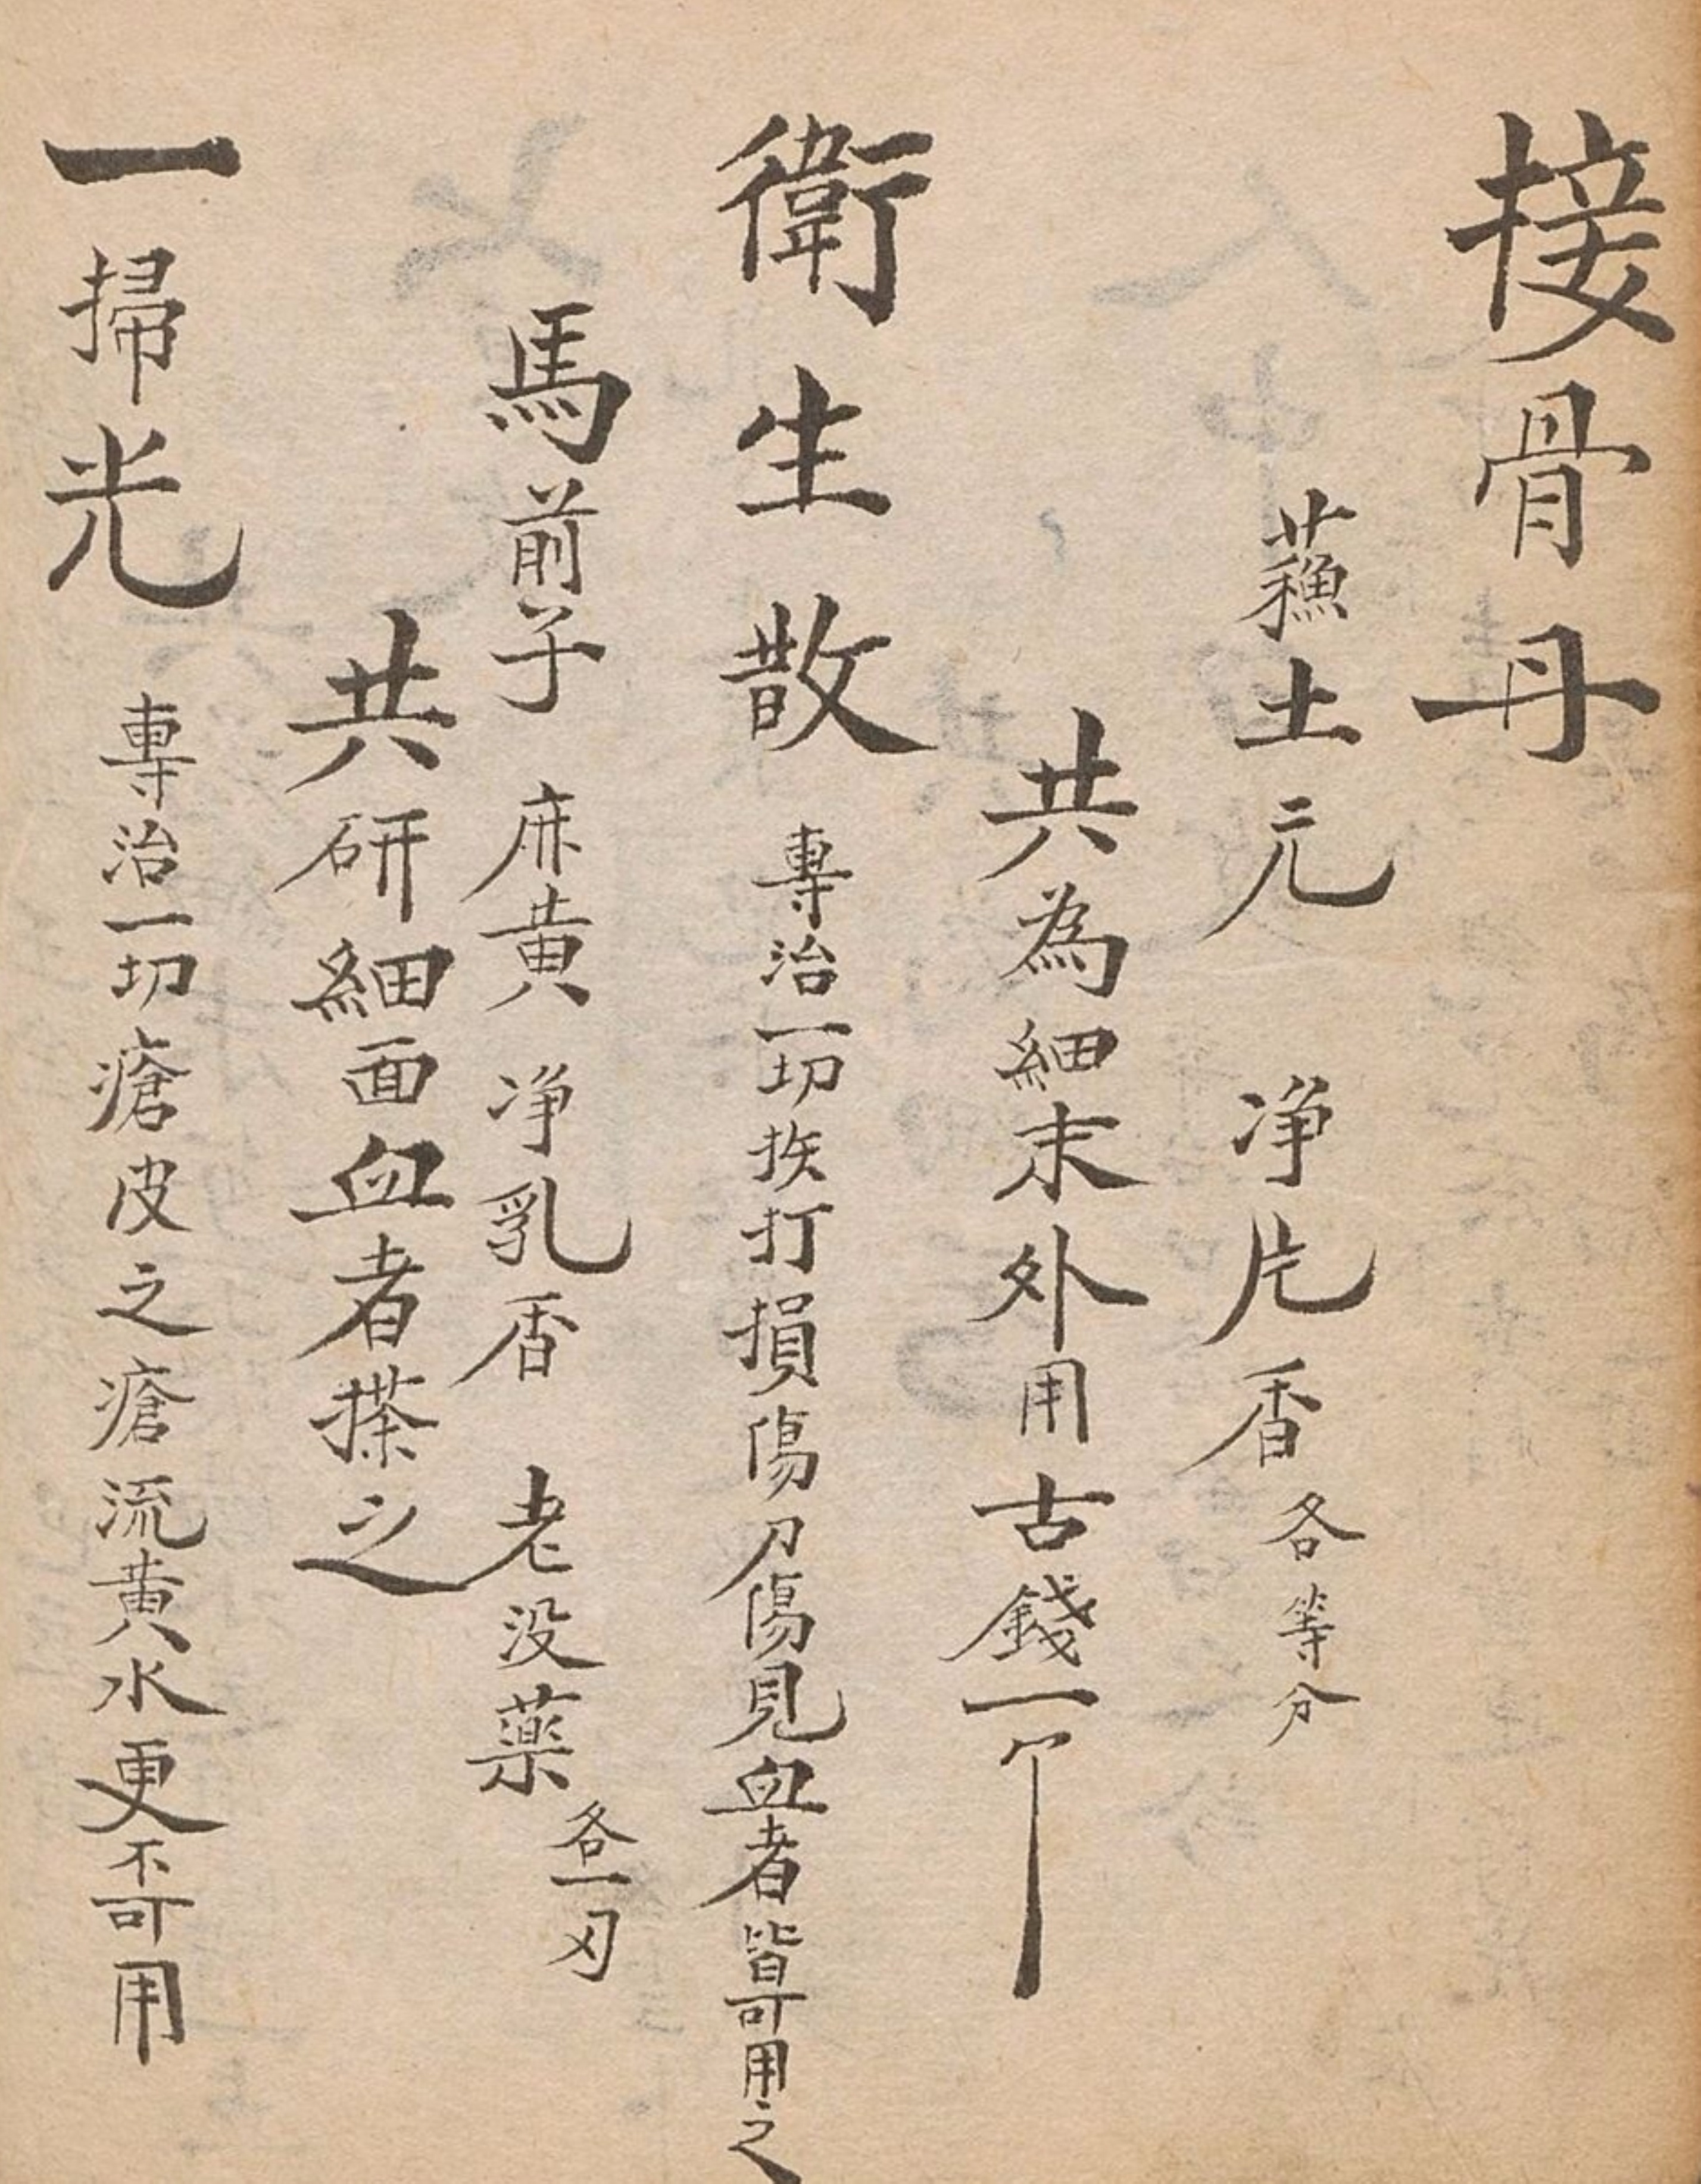 接骨丹
蘓土元 净片香 各等分
共為細末外用古錢一卩
衛生散 專治一切挨打損傷刀傷見血者皆可用之
馬前子 麻黄 净乳香 老没藥 各一刄
共研細面血者搽之
一掃光 專治一切瘡皮之瘡流黄水更可用